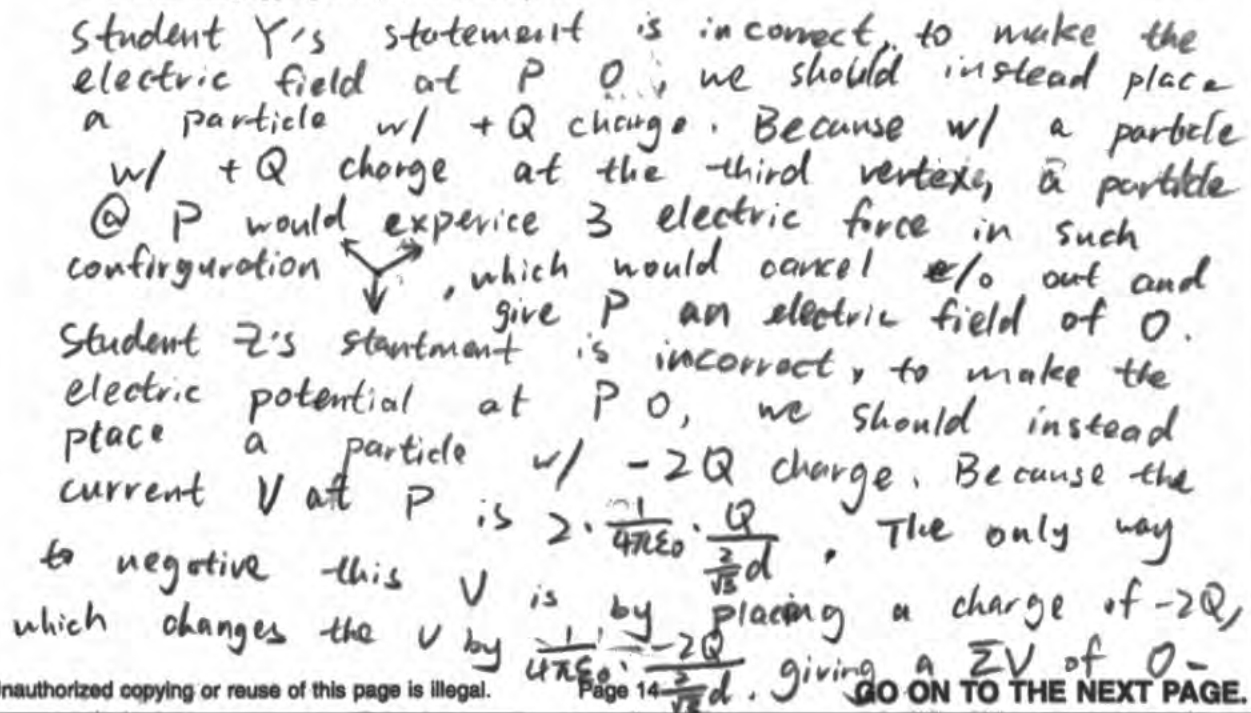 Student Y's statement is incorrect, to make the
electric field at P 0, we should instead place
a particle w/ +Q charge. Because w/ a particle
w/ +Q charge at the third vertexe, a particle
@ P would experice 3 electric force in such
confirguration , which would cancel e/o out and
give P an electric field of 0.
Student Z's stantment is incorrect, to make the
electric potential at P 0, we should instead
place a particle w/ -2Q charge. Because the
current V at P is 2 · 1/4πε₀ · Q/(2/√3 d). The only way
to negative this V is by placing a charge of -2Q,
which changes the V by 1/4πε₀ · -2Q/(2/√3 d). giving a ΣV of 0-
Unauthorized copying or reuse of this page is illegal. Page 14 GO ON TO THE NEXT PAGE.